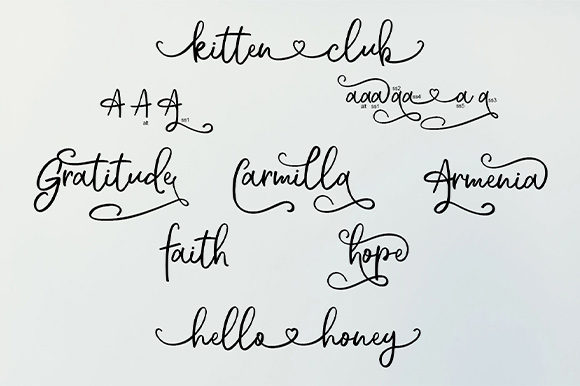 kitten club
A A A aaaaa a a
alt ss1 alt ss1 ss2 ss4 ss5 ss3
Gratitude Carmilla Armenia
faith hope
hello honey